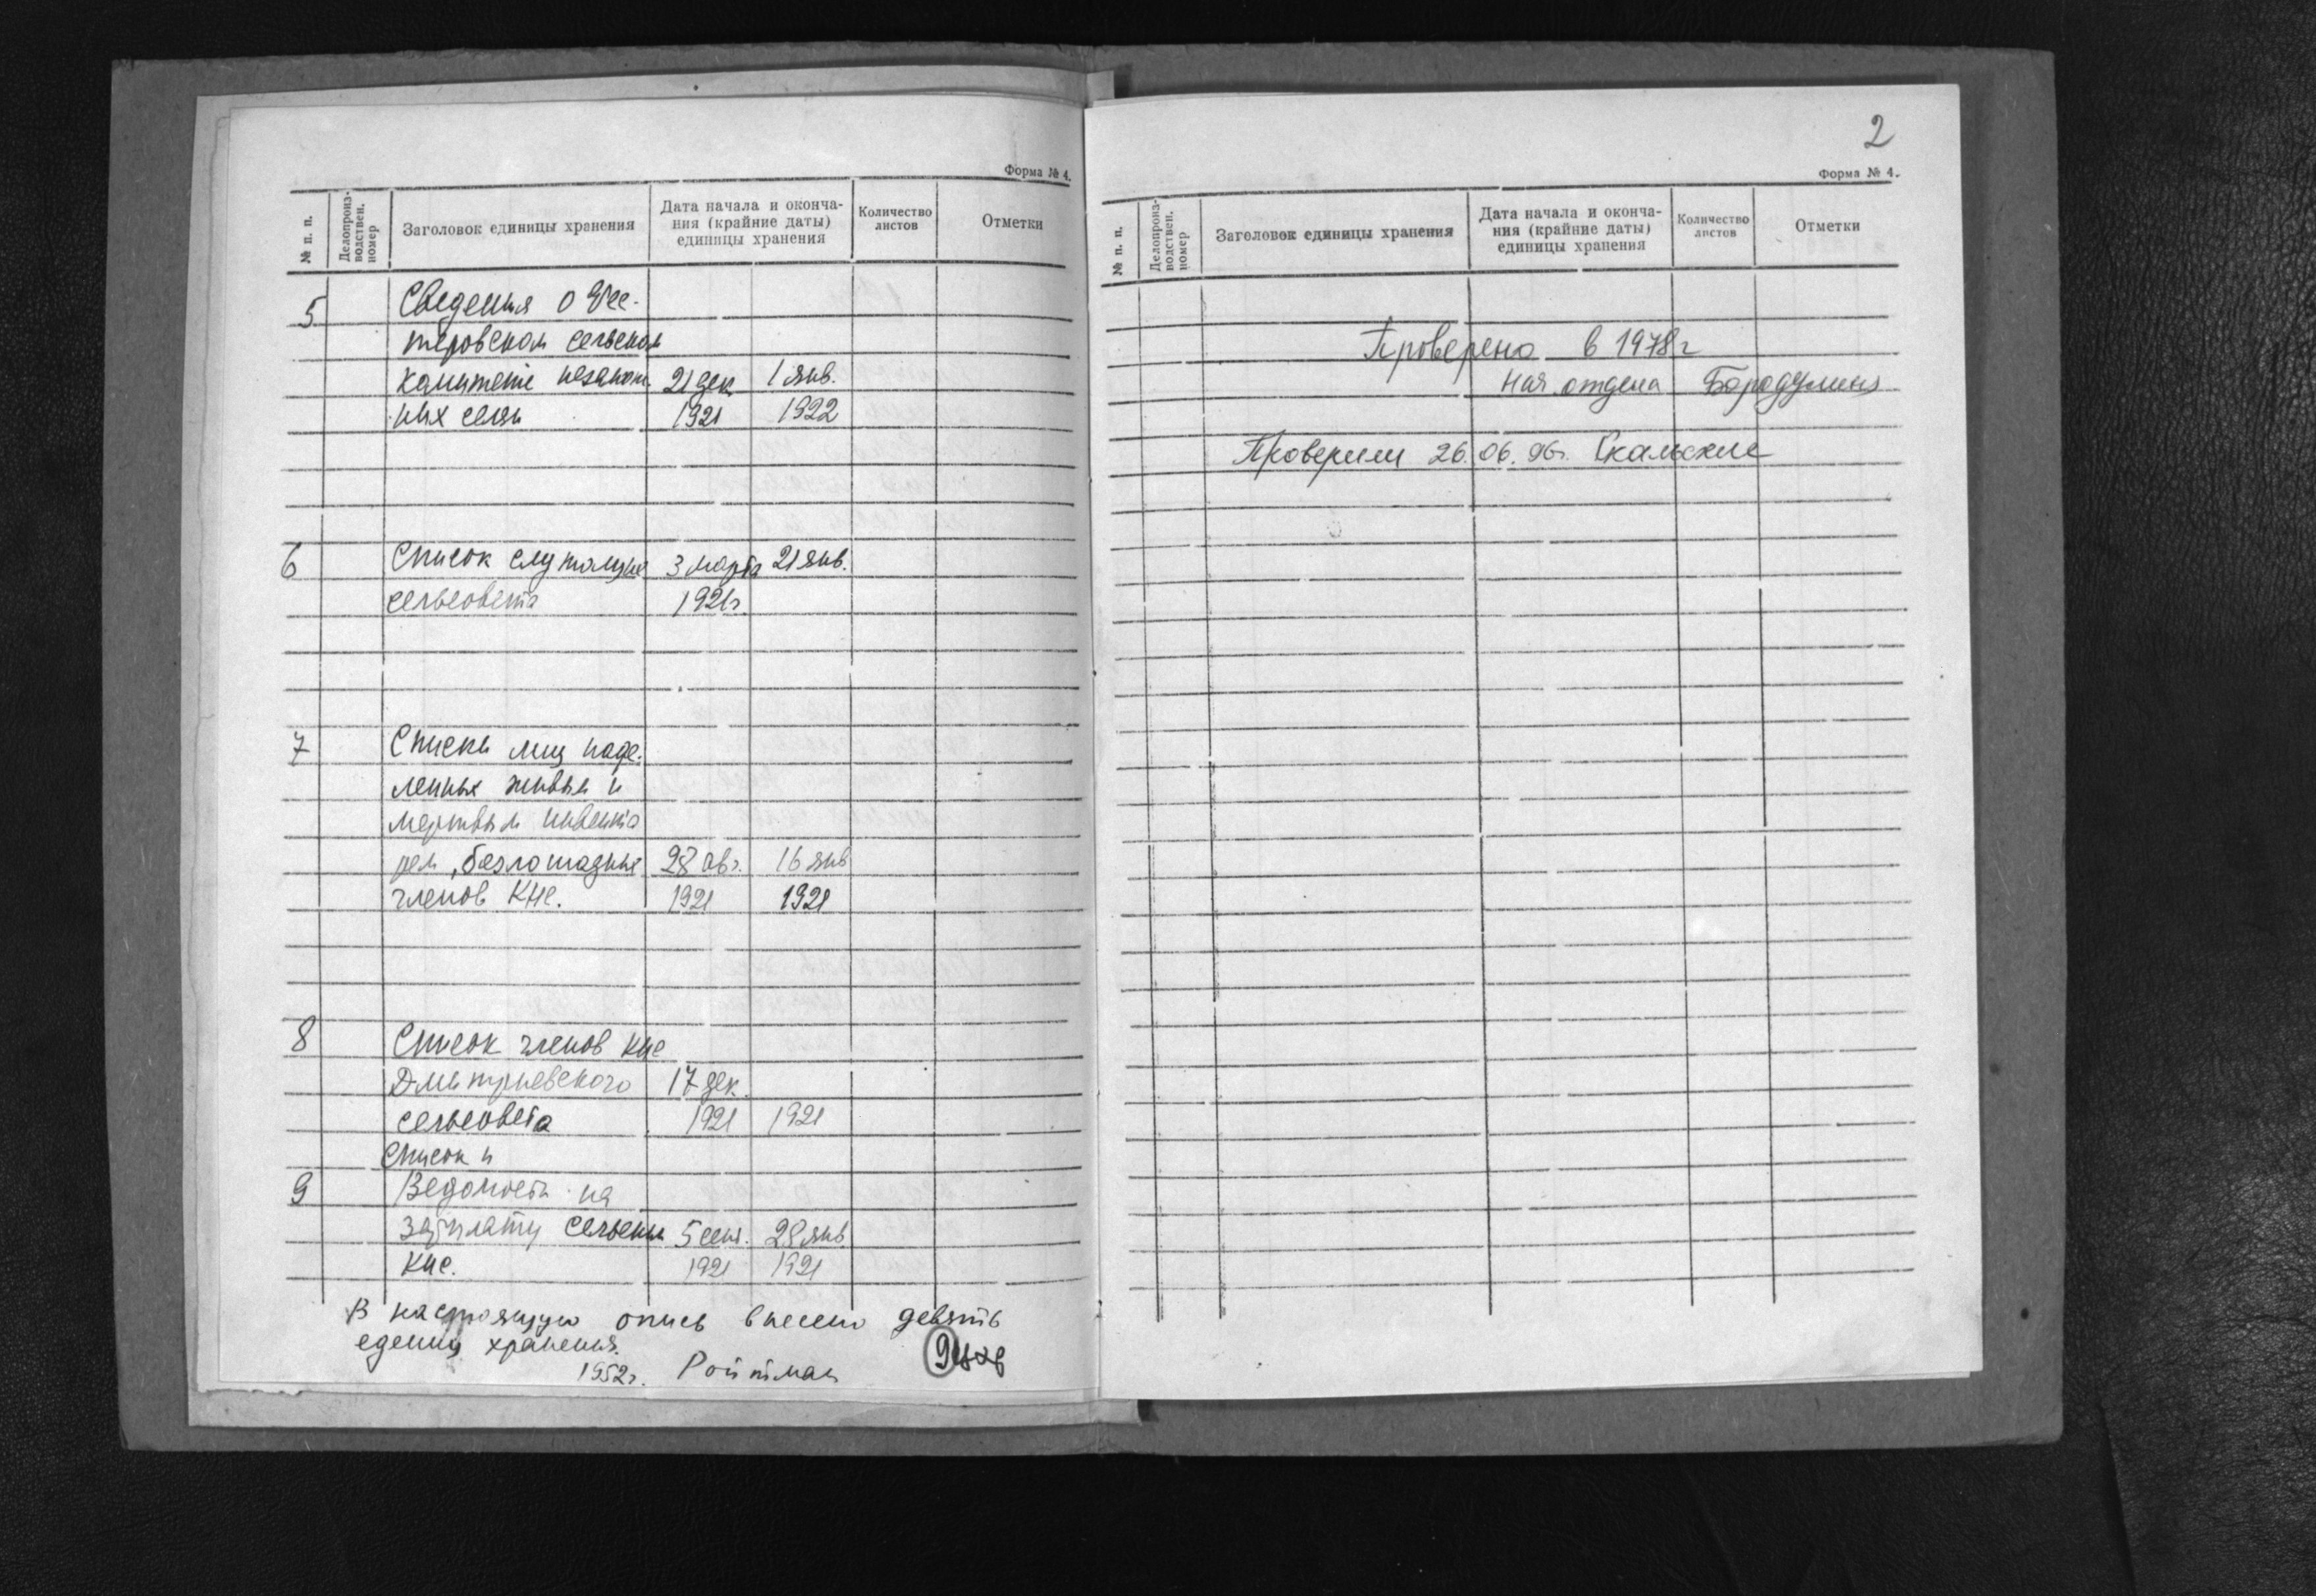 Форма № 4.
№ п. п.
Делопроиз-
водствен.
номер
Заголовок единицы хранения
Дата начала и оконча-
ния (крайние даты)
единицы хранения
Количество
листов
Отметки
5
Сведения о
теровском сельском
комитете незамож.
них селян
21 дек
1921
1 янв.
1922
6
Список служащих
сельсовета
3 марта
1921г.
21 янв.
7
Списки лиц наде-
ленных живым и
мертвым инвента
рем, безлошадных
членов КНС.
28 авг.
1921
16 янв
1921
8
Список членов КНС
Дмитриевского
сельсовета
17 дек.
1921
1921
Список и
9
Ведомость на
зарплату сельских
КНС.
5 сент.
1921
28 янв
1921
В настоящую опись внесено девять
едениц хранения.
1952г. Ройтман
9
2
Форма № 4.
№ п. п.
Делопроиз-
водствен.
номер
Заголовок единицы хранения
Дата начала и оконча-
ния (крайние даты)
единицы хранения
Количество
листов
Отметки
Проверено в 1978г
нач. отдела Бородулина
Проверили 26.06.96г.